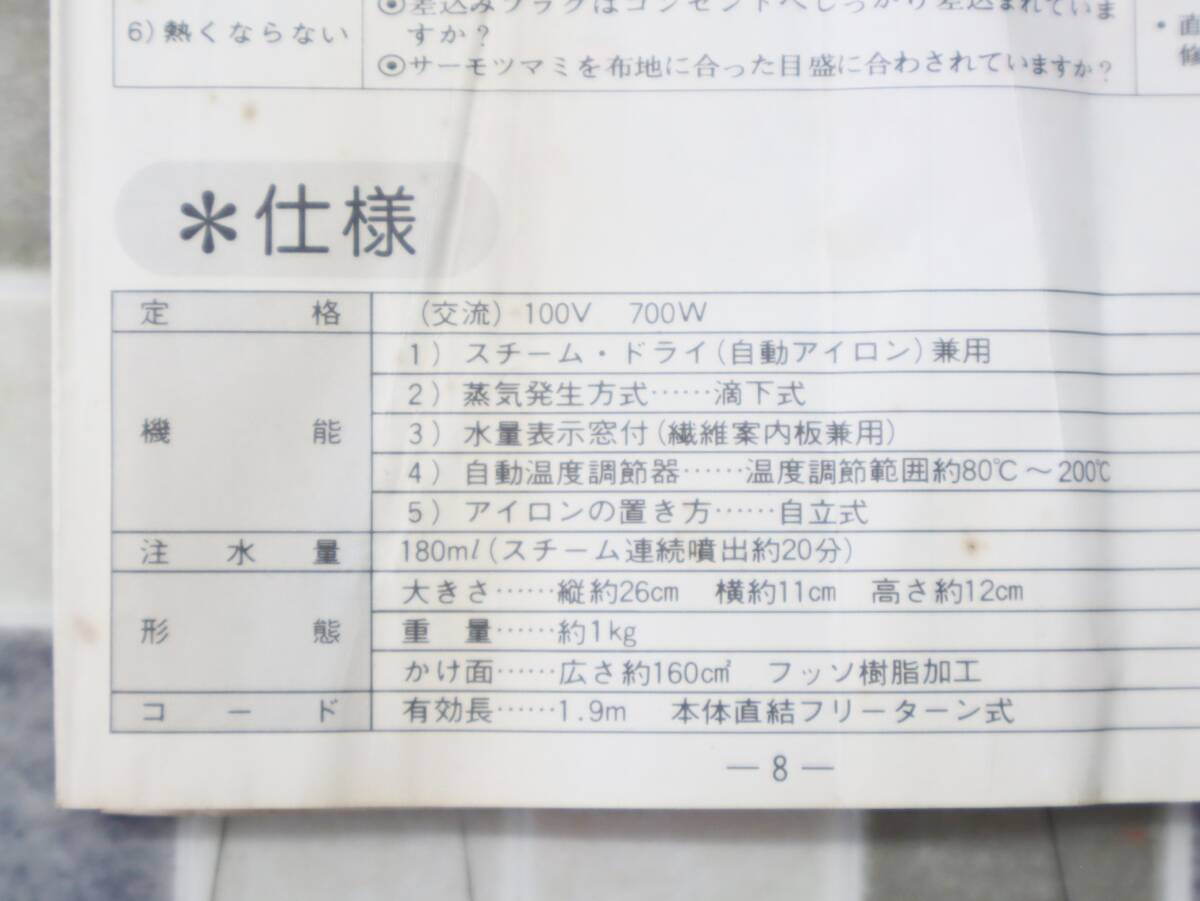 ◉差込みプラグはコンセントへしっかり差込まれていま
6) 熱くならない
すか?
◉サーモツマミを布地に合った目盛に合わされていますか?
・直
修
＊仕様
定格 (交流) 100V 700W
機能
1) スチーム・ドライ(自動アイロン)兼用
2) 蒸気発生方式……滴下式
3) 水量表示窓付(繊維案内板兼用)
4) 自動温度調節器……温度調節範囲約80℃～200℃
5) アイロンの置き方……自立式
注水量 180ml(スチーム連続噴出約20分)
形態
大きさ……縦約26cm 横約11cm 高さ約12cm
重量……約1kg
かけ面……広さ約160c㎡ フッソ樹脂加工
コード 有効長……1.9m 本体直結フリーターン式
— 8 —